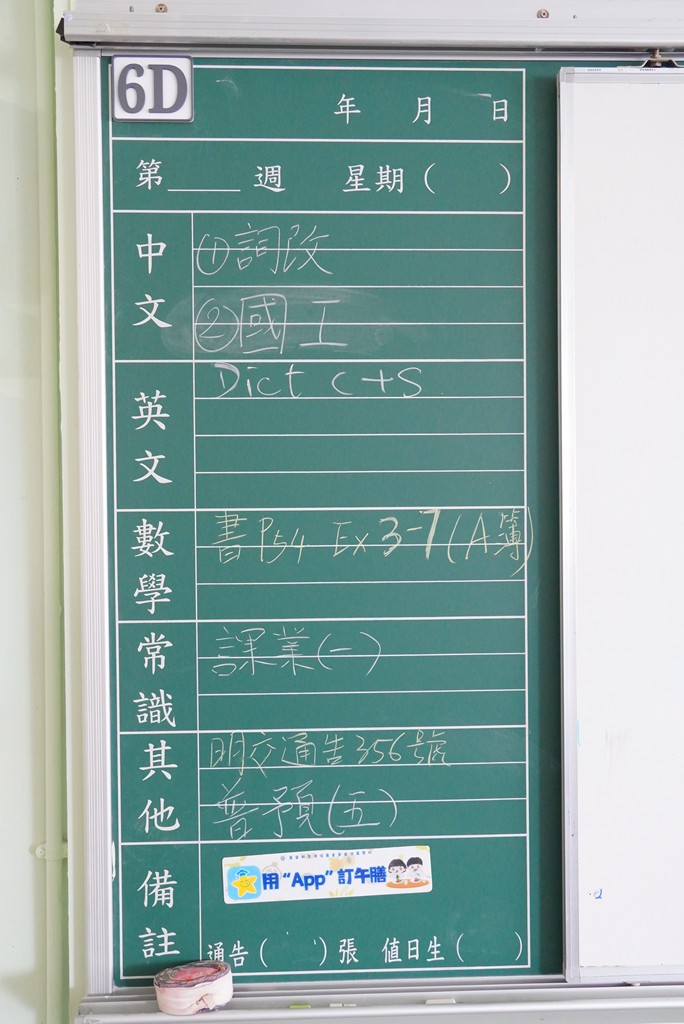 6D
年 月 日
第____週 星期( )
中文
①詞改
②國工
英文
Dict C+S
數學
書P54 Ex 3-7(A簿)
常識
課業(一)
其他
明交通告356號
普預(五)
備註
用“App”訂午膳
通告( )張 值日生( )